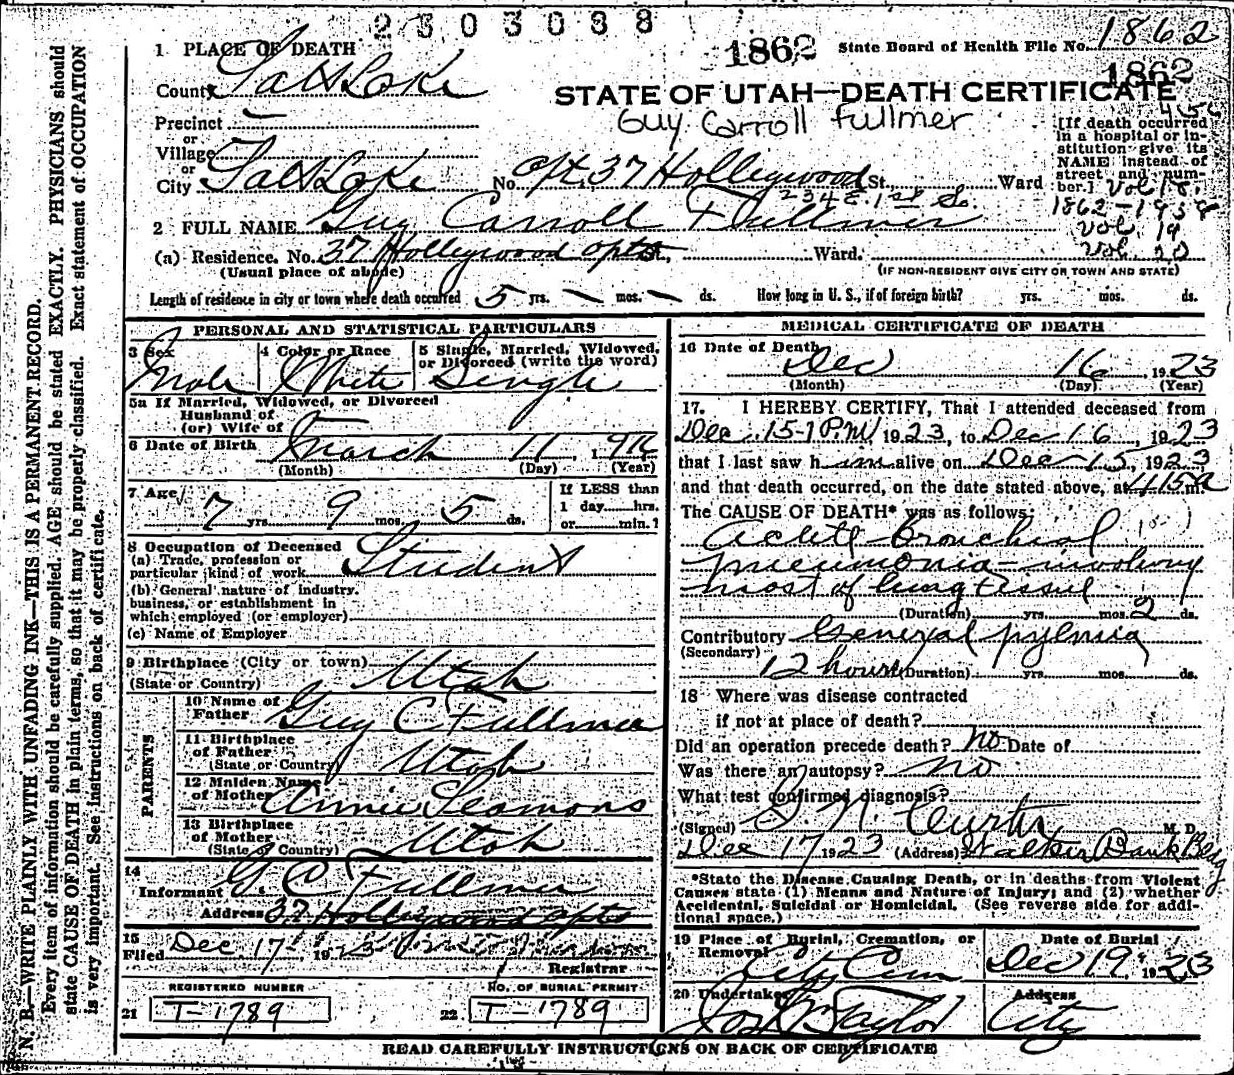 2303038
1 PLACE OF DEATH
1862
State Board of Health File No. 1862
1862
County Salt Lake
STATE OF UTAH—DEATH CERTIFICATE
Guy Carroll Fullmer
Precinct
or
Village
or
City Salt Lake No. Apt. 37 Hollywood St., Ward
234 E. 1st So.
[If death occurred in a hospital or institution give its NAME instead of street and number.]
Vol 18.
1862-1958
Vol. 19
Vol. 20
2 FULL NAME Guy Carroll Fullmer
(a) Residence. No. 37 Hollywood Apts St., Ward.
(Usual place of abode)
(IF NON-RESIDENT GIVE CITY OR TOWN AND STATE)
Length of residence in city or town where death occurred 5 yrs. — mos. — ds. How long in U. S., if of foreign birth? yrs. mos. ds.
PERSONAL AND STATISTICAL PARTICULARS
3 Sex Male
4 Color or Race White
5 Single, Married, Widowed, or Divorced (write the word) Single
5a If Married, Widowed, or Divorced
Husband of
(or) Wife of
6 Date of Birth March 11, 1916
(Month) (Day) (Year)
7 Age 7 yrs. 9 mos. 5 ds.
If LESS than
1 day hrs.
or min.?
8 Occupation of Deceased
(a) Trade, profession or
particular kind of work Student
(b) General nature of industry,
business, or establishment in
which employed (or employer)
(c) Name of Employer
9 Birthplace (City or town)
(State or Country) Utah
PARENTS
10 Name of
Father Guy C Fullmer
11 Birthplace
of Father
(State or Country) Utah
12 Maiden Name
of Mother Annie Seamons
13 Birthplace
of Mother
(State or Country) Utah
14
Informant G. C. Fullmer
Address 37 Hollywood Apts
15
Filed Dec. 17, 1923
Registrar
REGISTERED NUMBER
21 T-1789
NO. OF BURIAL PERMIT
22 T-1789
MEDICAL CERTIFICATE OF DEATH
16 Date of Death Dec 16, 1923
(Month) (Day) (Year)
17. I HEREBY CERTIFY, That I attended deceased from
Dec 15-1 P.M 1923, to Dec 16, 1923
that I last saw him alive on Dec 15, 1923
and that death occurred, on the date stated above, at 415a m.
The CAUSE OF DEATH* was as follows:
Acute Bronchial
pneumonia - involving
most of lung tissue
(Duration) yrs. mos. 2 ds.
Contributory General pylmia
(Secondary)
12 hours (Duration) yrs. mos. ds.
18 Where was disease contracted
if not at place of death?
Did an operation precede death? No Date of
Was there an autopsy? No
What test confirmed diagnosis?
(Signed) Curtis M. D.
Dec 17 1923 (Address) Walker Bank Bldg
*State the Disease Causing Death, or in deaths from Violent
Causes state (1) Means and Nature of Injury; and (2) whether
Accidental, Suicidal or Homicidal. (See reverse side for addi-
tional space.)
19 Place of Burial, Cremation, or
Removal City Cem
Date of Burial
Dec 19, 1923
20 Undertaker Jos Wm Taylor
Address
City
READ CAREFULLY INSTRUCTIONS ON BACK OF CERTIFICATE
N. B.—WRITE PLAINLY WITH UNFADING INK—THIS IS A PERMANENT RECORD.
Every item of information should be carefully supplied. AGE should be stated EXACTLY. PHYSICIANS should
state CAUSE OF DEATH in plain terms, so that it may be properly classified. Exact statement of OCCUPATION
is very important. See instructions on back of certificate.